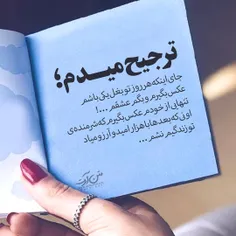 ترجیح میدم؛
جای اینکه هر روز تو بغل یکی باشم
عکس بگیرم و بگم عشقم...!
تنهایی از خودم عکس بگیرم که شرمنده‌ی
اونی که بعدها با هزار امید و آرزو میاد
تو زندگیم نشم...